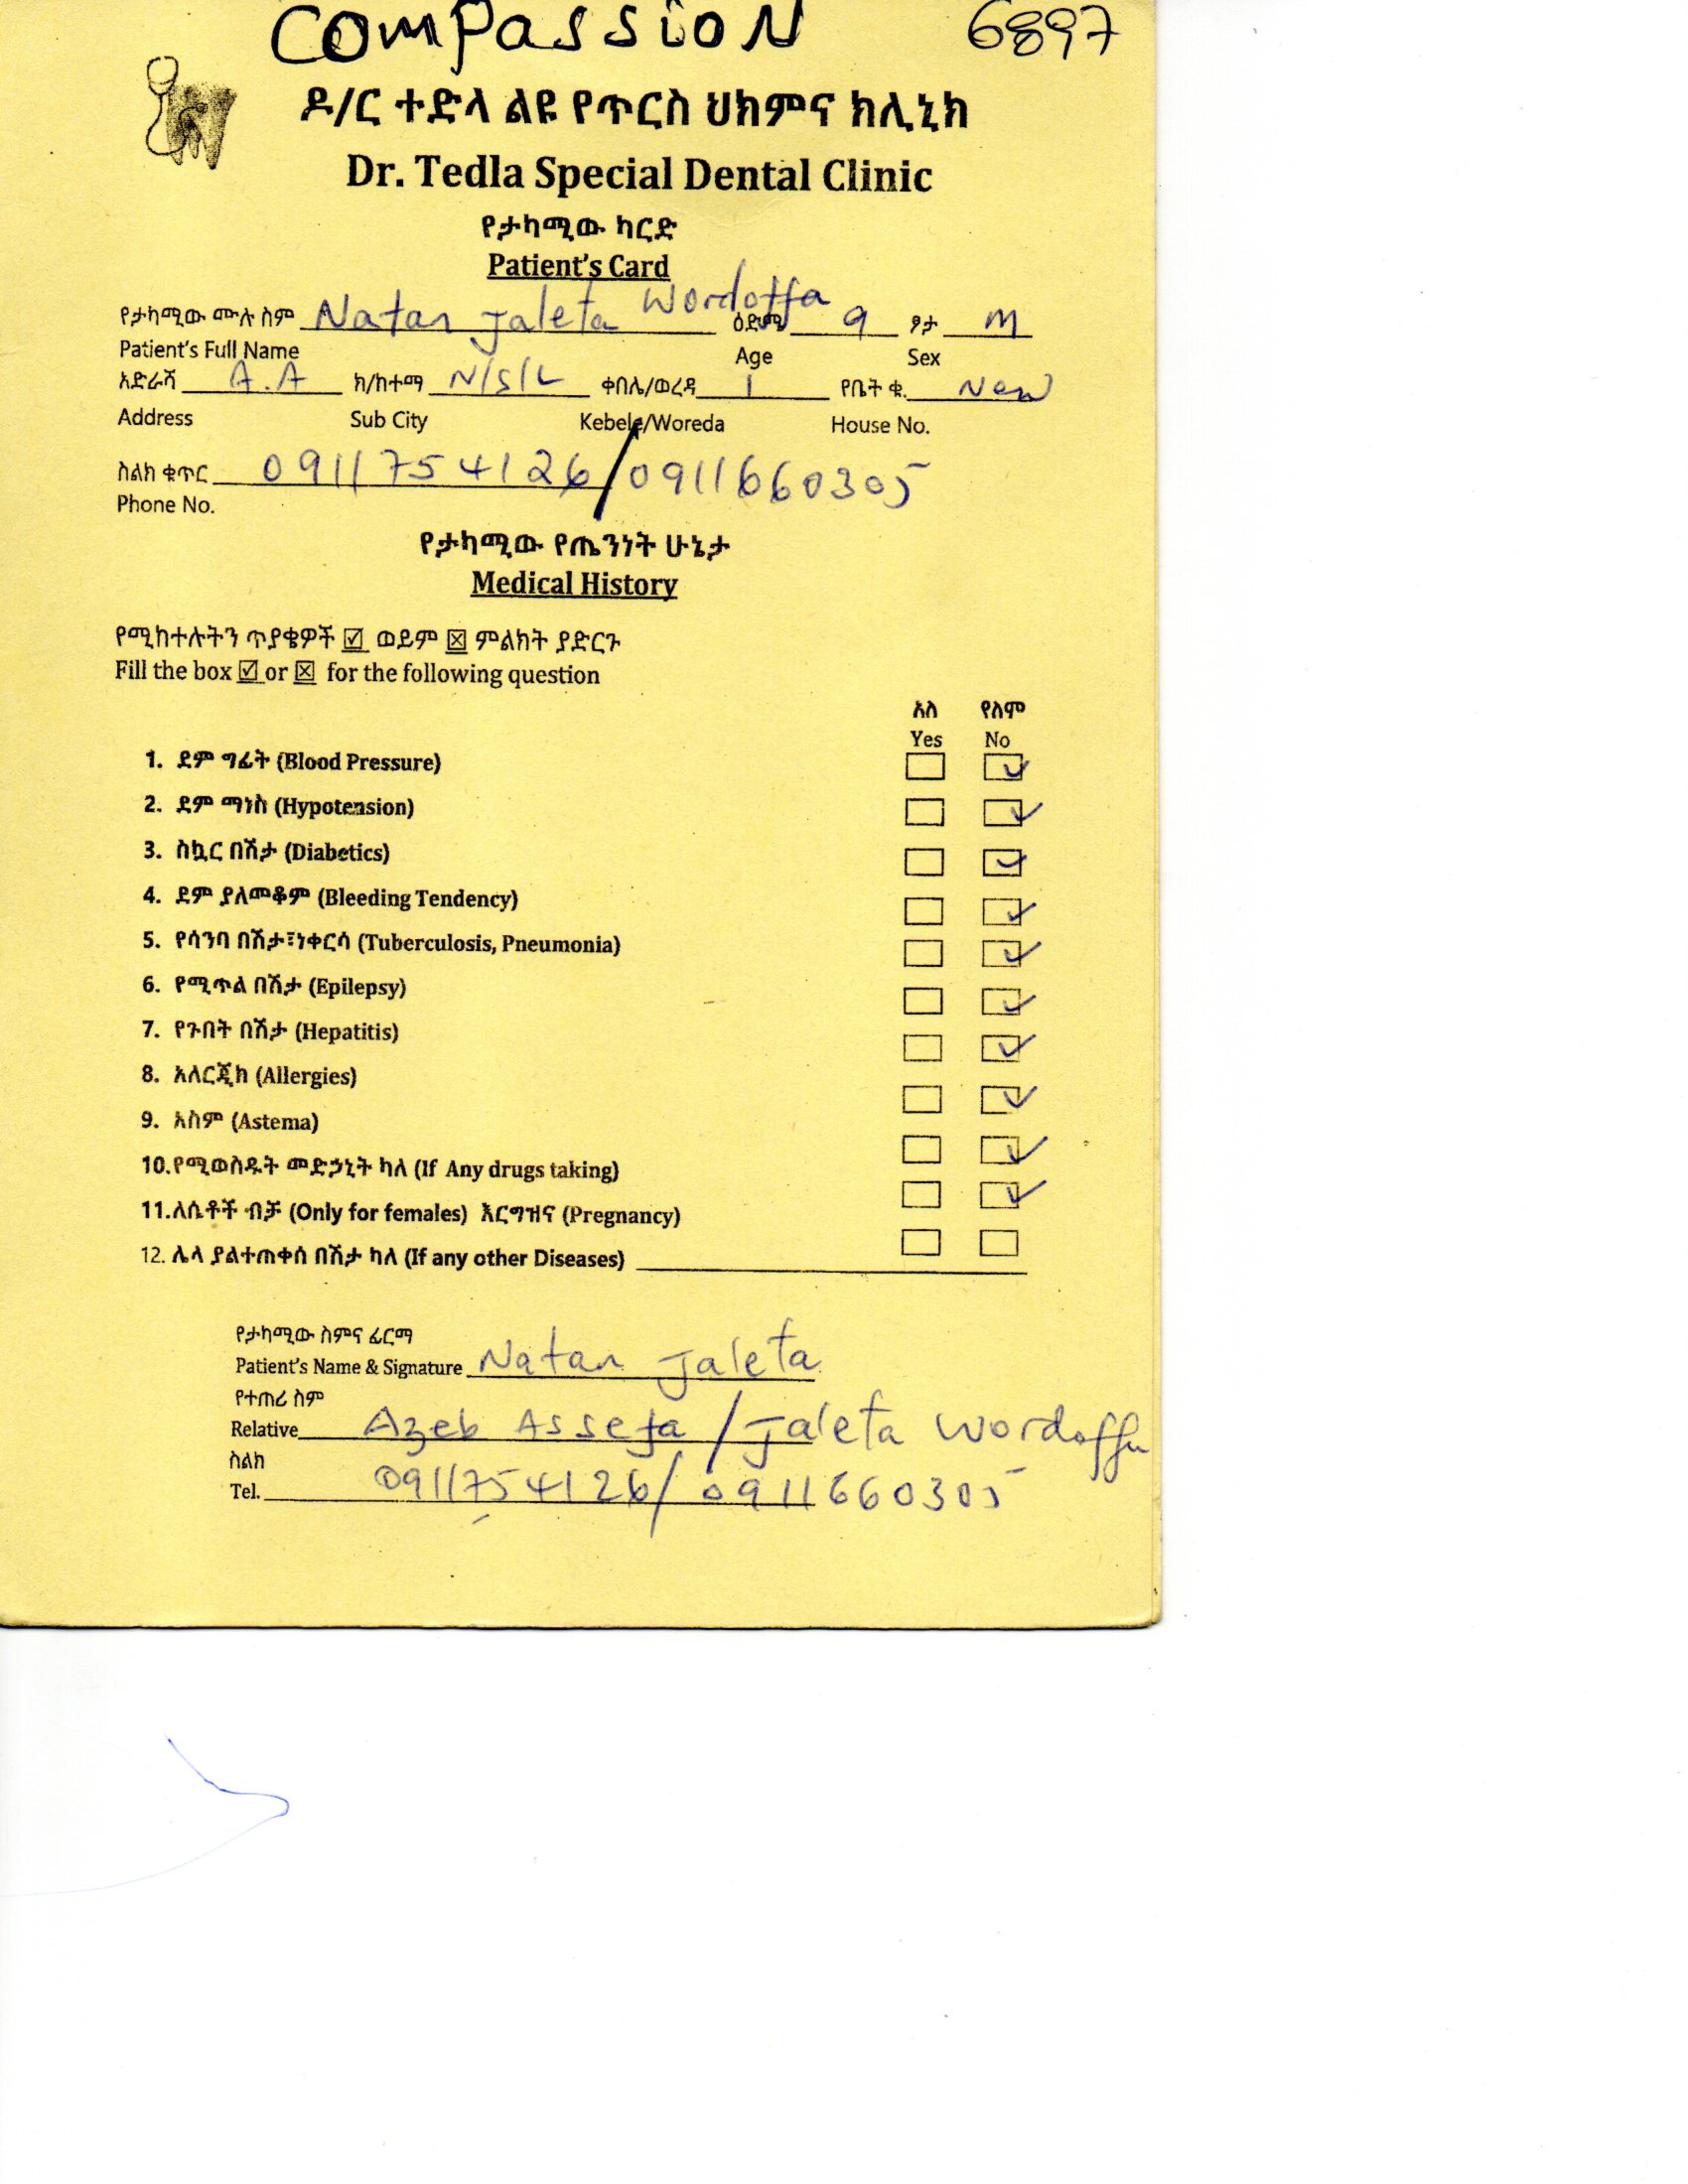 Compassion 6897
ዶ/ር ተድላ ልዩ የጥርስ ህክምና ክሊኒክ
Dr. Tedla Special Dental Clinic
የታካሚው ካርድ
Patient's Card
የታካሚው ሙሉ ስም Natan Jaleta Wordoffa ዕድሜ 9 ፆታ M
Patient's Full Name Age Sex
አድራሻ A.A ክ/ከተማ N/S/L ቀበሌ/ወረዳ 1 የቤት ቁ. New
Address Sub City Kebele/Woreda House No.
ስልክ ቁጥር 0911754126/0911660305
Phone No.
የታካሚው የጤንነት ሁኔታ
Medical History
የሚከተሉትን ጥያቄዎች ☑ ወይም ☒ ምልክት ያድርጉ
Fill the box ☑ or ☒ for the following question
አለ የለም
Yes No
1. ደም ግፊት (Blood Pressure) ☐ ☑
2. ደም ማነስ (Hypotension) ☐ ☑
3. ስኳር በሽታ (Diabetics) ☐ ☑
4. ደም ያለመቆም (Bleeding Tendency) ☐ ☑
5. የሳንባ በሽታ፣ነቀርሳ (Tuberculosis, Pneumonia) ☐ ☑
6. የሚጥል በሽታ (Epilepsy) ☐ ☑
7. የጉበት በሽታ (Hepatitis) ☐ ☑
8. አለርጂክ (Allergies) ☐ ☑
9. አስም (Astema) ☐ ☑
10.የሚወስዱት መድኃኒት ካለ (If Any drugs taking) ☐ ☑
11.ለሴቶች ብቻ (Only for females) እርግዝና (Pregnancy) ☐ ☐
12. ሌላ ያልተጠቀሰ በሽታ ካለ (If any other Diseases)
የታካሚው ስምና ፊርማ
Patient's Name & Signature Natan Jaleta
የተጠሪ ስም
Relative Azeb Assefa / Jaleta Wordoffa
ስልክ
Tel. 0911754126/0911660305